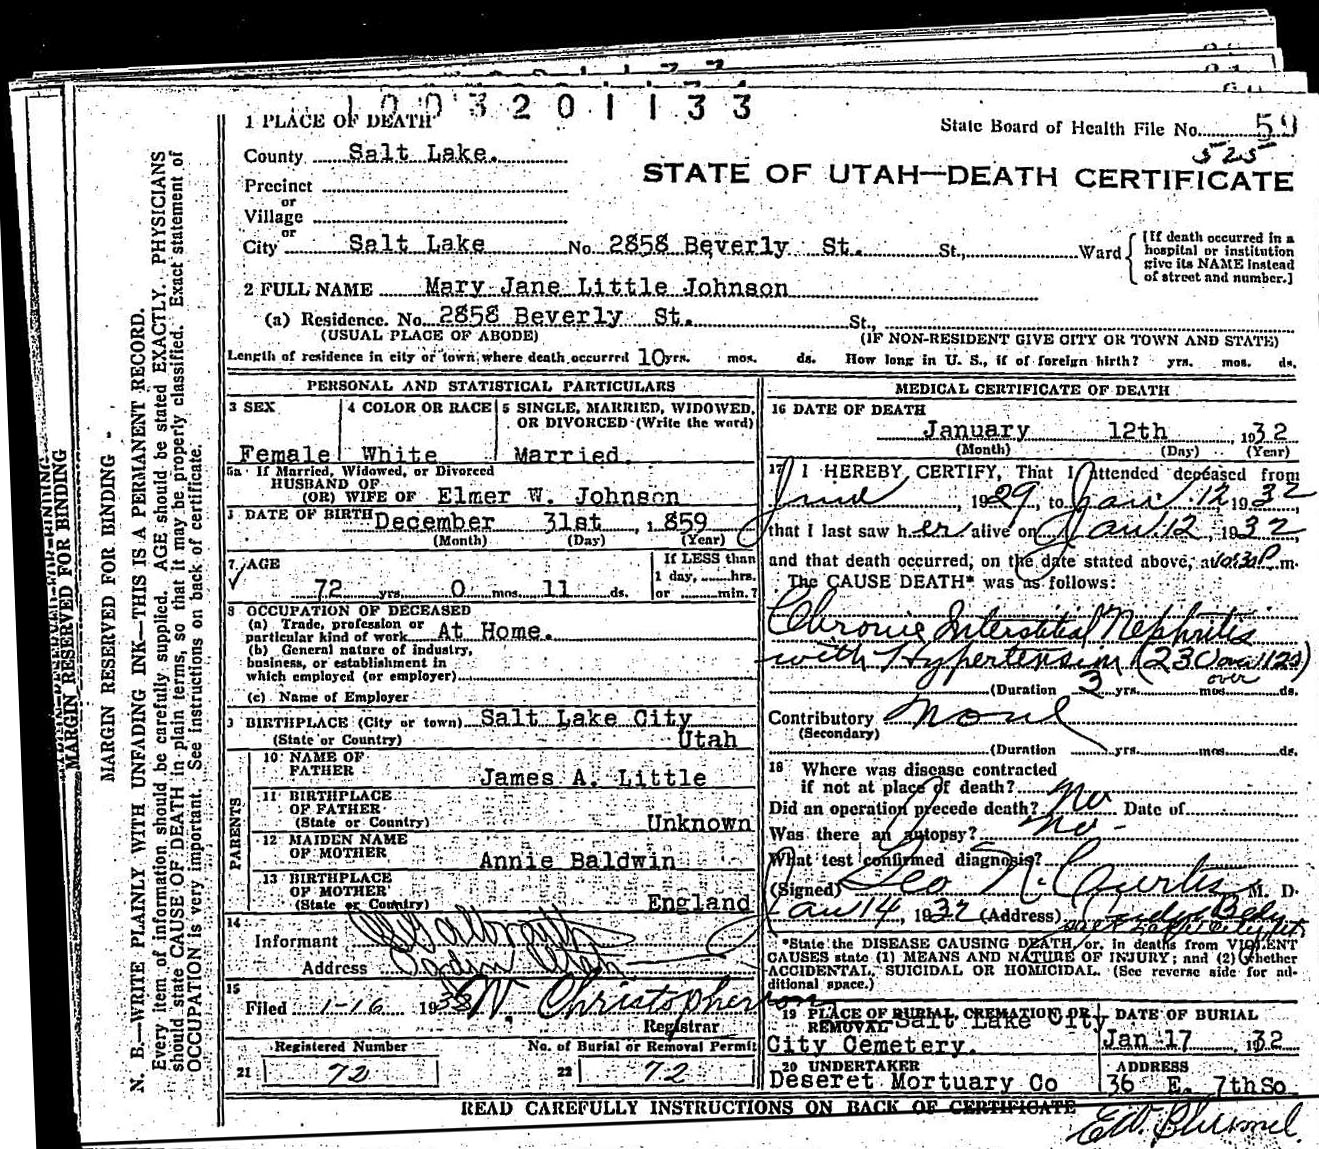 1003201133
1 PLACE OF DEATH
State Board of Health File No. 59
525
County Salt Lake.
STATE OF UTAH—DEATH CERTIFICATE
Precinct
or
Village
or
City Salt Lake No. 2858 Beverly St. St., Ward
[If death occurred in a hospital or institution give its NAME instead of street and number.]
2 FULL NAME Mary Jane Little Johnson
(a) Residence. No. 2858 Beverly St. St.,
(USUAL PLACE OF ABODE) (IF NON-RESIDENT GIVE CITY OR TOWN AND STATE)
Length of residence in city or town where death occurrrd 10 yrs. mos. ds. How long in U. S., if of foreign birth? yrs. mos. ds.
PERSONAL AND STATISTICAL PARTICULARS
3 SEX
Female
4 COLOR OR RACE
White
5 SINGLE, MARRIED, WIDOWED,
OR DIVORCED (Write the word)
Married.
5a If Married, Widowed, or Divorced
HUSBAND OF
(OR) WIFE OF Elmer W. Johnson
DATE OF BIRTH December 31st, 1859
(Month) (Day) (Year)
7 AGE
72 yrs. 0 mos. 11 ds.
If LESS than
1 day, hrs.
or min.?
8 OCCUPATION OF DECEASED
(a) Trade, profession or
particular kind of work At Home.
(b) General nature of industry,
business, or establishment in
which employed (or employer)
(c) Name of Employer
9 BIRTHPLACE (City or town) Salt Lake City
(State or Country) Utah
PARENTS
10 NAME OF
FATHER James A. Little
11 BIRTHPLACE
OF FATHER
(State or Country) Unknown
12 MAIDEN NAME
OF MOTHER Annie Baldwin
13 BIRTHPLACE
OF MOTHER
(State or Country) England
14
Informant
Address
15
Filed 1-16 193 W. Christopherson
Registrar
Registered Number No. of Burial or Removal Permit
21 72 22 72
MEDICAL CERTIFICATE OF DEATH
16 DATE OF DEATH
January 12th, 1932
(Month) (Day) (Year)
17 I HEREBY CERTIFY, That I attended deceased from
June, 1929, to Jan. 12, 1932,
that I last saw her alive on Jan 12, 1932
and that death occurred, on the date stated above, at 10:30 P. m.
The CAUSE DEATH* was as follows:
Chronic Interstitial Nephritis
with Hypertension (230 over 120)
over
(Duration 3 yrs. mos. ds.
Contributory None
(Secondary)
(Duration yrs. mos. ds.
18 Where was disease contracted
if not at place of death?
Did an operation precede death? No Date of
Was there an autopsy? No -
What test confirmed diagnosis?
(Signed) Geo N. Curtis M. D.
Jan 14, 1932 (Address) Judge Bldg
Salt Lake City Ut.
*State the DISEASE CAUSING DEATH, or, in deaths from VIOLENT
CAUSES state (1) MEANS AND NATURE OF INJURY; and (2) whether
ACCIDENTAL, SUICIDAL OR HOMICIDAL. (See reverse side for ad-
ditional space.)
19 PLACE OF BURIAL, CREMATION OR
REMOVAL Salt Lake City
City Cemetery.
DATE OF BURIAL
Jan 17 1932
20 UNDERTAKER
Deseret Mortuary Co
ADDRESS
36 E. 7th So
READ CAREFULLY INSTRUCTIONS ON BACK OF CERTIFICATE
MARGIN RESERVED FOR BINDING
MARGIN RESERVED FOR BINDING -
N. B.—WRITE PLAINLY WITH UNFADING INK—THIS IS A PERMANENT RECORD.
Every item of information should be carefully supplied. AGE should be stated EXACTLY. PHYSICIANS
should state CAUSE OF DEATH in plain terms, so that it may be properly classified. Exact statement of
OCCUPATION is very important. See instructions on back of certificate.